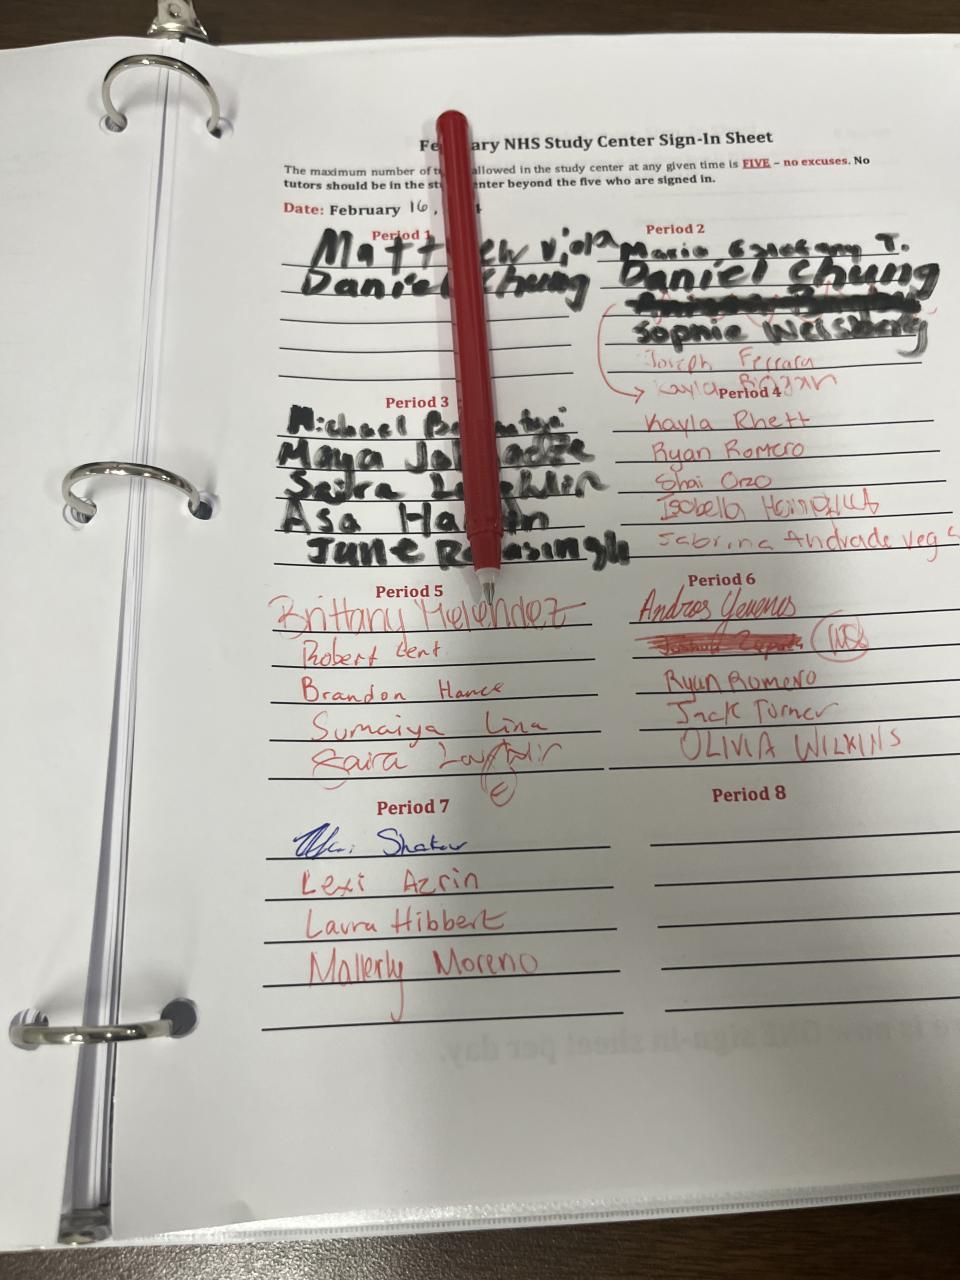 Fe ary NHS Study Center Sign-In Sheet
The maximum number of t allowed in the study center at any given time is FIVE – no excuses. No
tutors should be in the st enter beyond the five who are signed in.
Date: February 16, 4
Period 1
Matt ew Viola
Daniel Chung
Period 2
Maria T.
Daniel Chung
Sophie Weisberg
Joseph Ferrara
Kayla
Period 3
Michael
Maya
Saira
Asa
June
Period 4
Kayla Rhett
Ryan Romero
Shai Orzo
Isabella
Sabrina Andrade Vega
Period 5
Brittany Melendez
Robert Cent
Brandon Hance
Sumaiya Lina
Saira
Period 6
Andres
Joshua Zepata
Ryan Romero
Jack Turner
OLIVIA WILKINS
Period 7
Shaker
Lexi Azrin
Laura Hibbert
Mallerly Moreno
Period 8